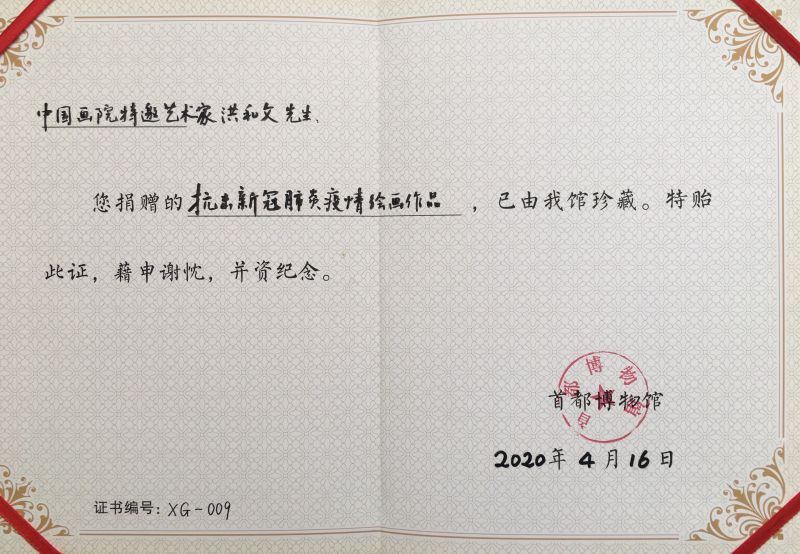 中国画院特邀艺术家洪和文先生、
您捐赠的抗击新冠肺炎疫情绘画作品，已由我馆珍藏。特贻
此证，藉申谢忱，并资纪念。
首都博物馆
首都博物馆
2020年4月16日
证书编号：XG-009